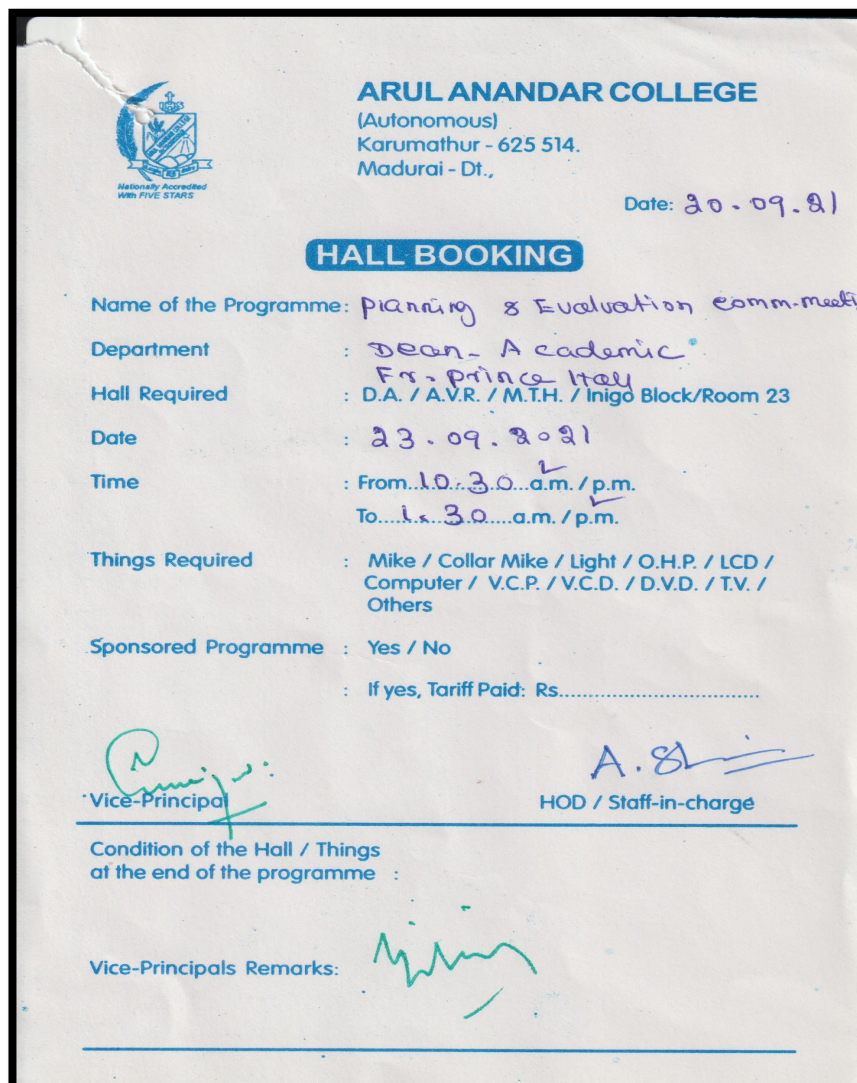 ARUL ANANDAR COLLEGE
(Autonomous)
Karumathur - 625 514.
Madurai - Dt.,
Nationally Accredited
With FIVE STARS
Date: 20.09.21
HALL BOOKING
Name of the Programme: Planning & Evaluation comm-meeti
Department : Dean- Academic
Fr. Prince Hall
Hall Required : D.A. / A.V.R. / M.T.H. / Inigo Block/Room 23
Date : 23.09.2021
Time : From..10.30...a.m. / p.m.
To....1.30....a.m. / p.m.
Things Required : Mike / Collar Mike / Light / O.H.P. / LCD /
Computer / V.C.P. / V.C.D. / D.V.D. / T.V. /
Others
Sponsored Programme : Yes / No
: If yes, Tariff Paid: Rs.................................
Vice-Principal
HOD / Staff-in-charge
Condition of the Hall / Things
at the end of the programme :
Vice-Principals Remarks: